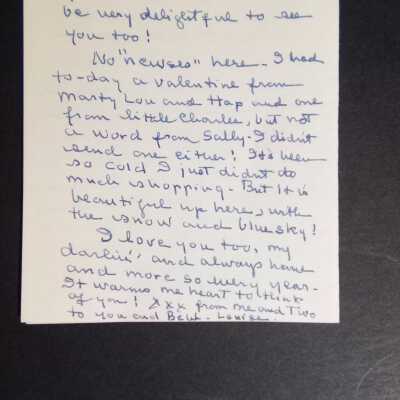 be very delightful to see
you too!
No "newses" here - I had
to-day a valentine from
Marty Lou and Hap and one
from little Charlee, but not
a word from Sally - I didn't
send one either! It's been
so cold I just didn't do
much shopping - But it is
beautiful up here, with
the snow and blue sky!
I love you too, my
darlin', and always have
and more so every year -
It warms me heart to think
of you! xxx from me and Two
to you and - Louise.